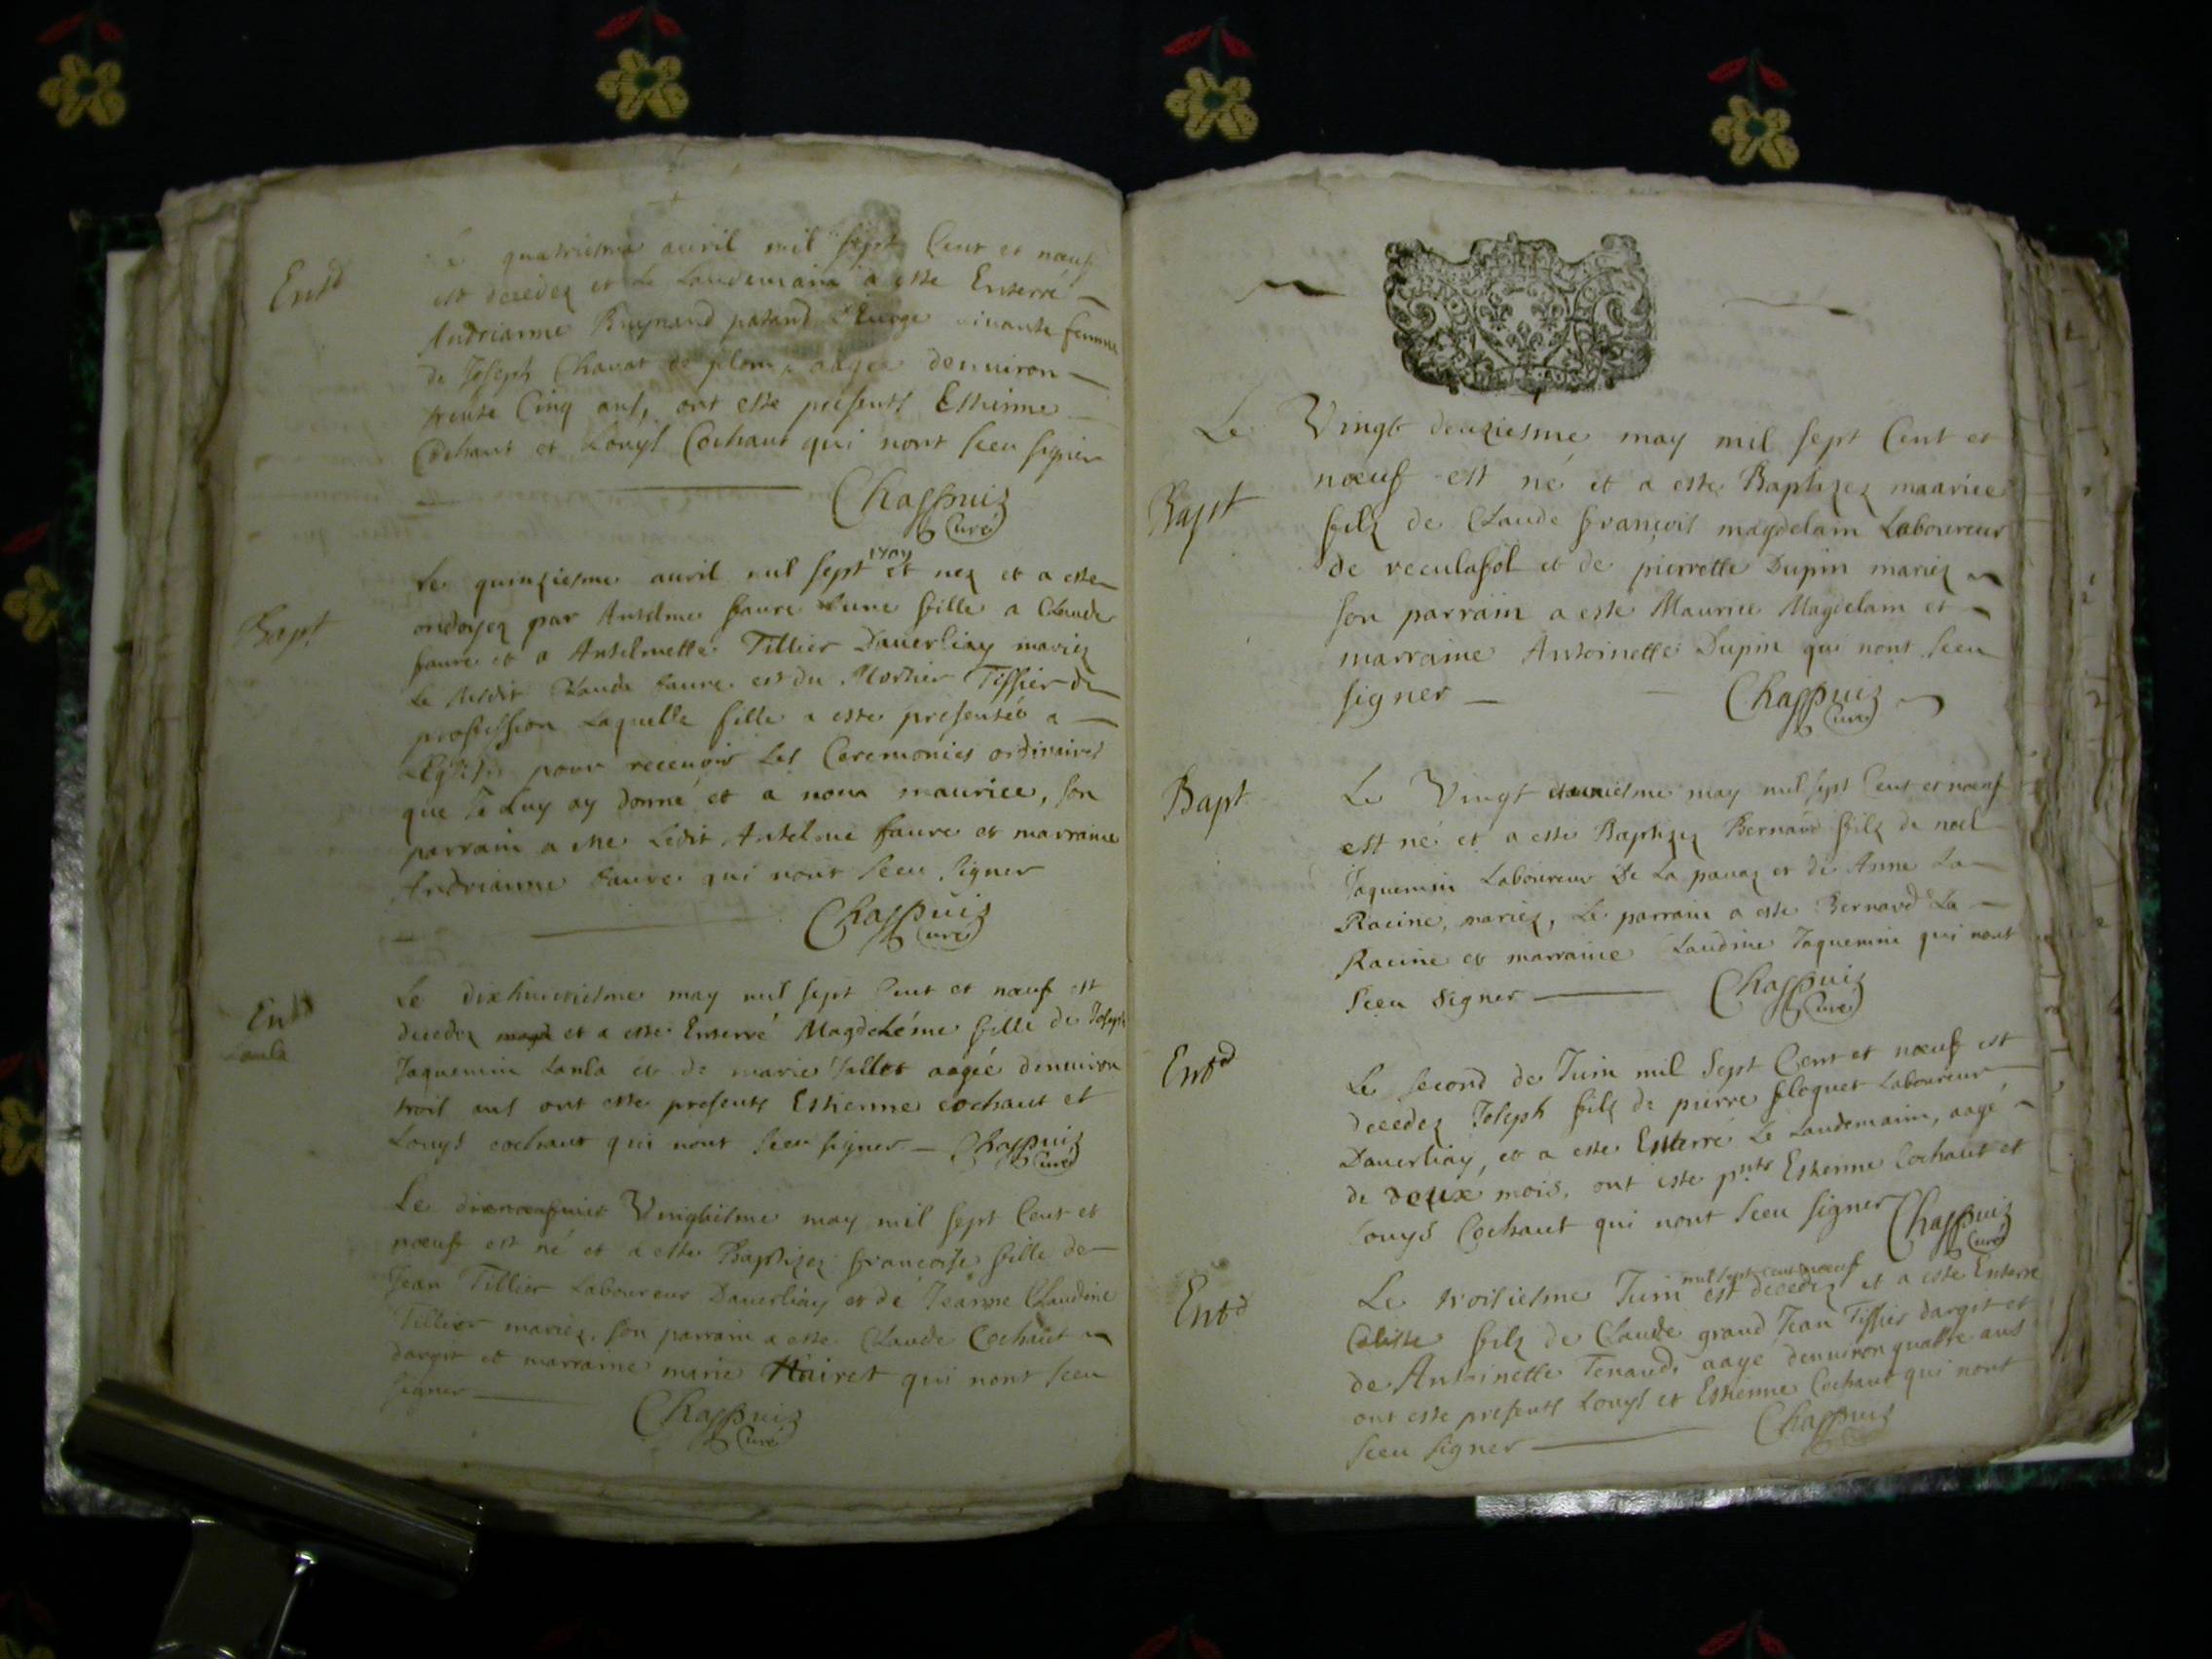 Entd
quatriesme auril mil sept Cent et nœuf
est decedez et Le Landemain a este Enterré
Andrianne femme
de Joseph Chavat de aagée denuiron
trente Cinq ans, ont este presents Estienne
Cochaut et Louys Cochaut qui nont sceu signer
Chappuiz
Curé
Bapt
Le quinziesme auril mil sept 1709 et nez et a este
ondoyez par Anselme faure une fille a Claude
faure et a Anselmette Tillier Dauerliay mariez
Le susdit Claude faure est du Mortier Tissier de
profession Laquelle fille a este presentée a
LEglise pour receuoir Les Ceremonies ordinaires
que Je Luy ay donné et a nom maurice, son
parrain a este Ledit Anselme faure et marraine
Andrianne faure qui nont sceu signer
Chappuiz
Curé
Entd
Lanla
Le dixhuictiesme may mil sept Cent et nœuf est
decedez et a este Enterré Magdeleine fille de Joseph
Jaquemin Lanla et de marie aagée denuiron
trois ans ont este presents Estienne cochaut et
Louys cochaut qui nont sceu signer Chappuiz
Curé
Le Vingtiesme may mil sept Cent et
nœuf est né et a este Baptizez françoise fille de
Jean Tillier Laboureur Dauerliay et de Jeanne Claudine
Tillier mariez, son parrain a este Claude Cochaut
dargit et marraine marie Mairet qui nont sceu
signer
Chappuiz
Curé
Le Vingt deuziesme may mil sept Cent et
nœuf est né et a este Baptizez maurice
Bapt
filz de Claude françois magdelain Laboureur
de reculafol et de pierrette Dupin mariez
son parrain a este Maurice Magdelain et
marraine Antoinette Dupin qui nont sceu
signer Chappuiz
Curé
Bapt
Le Vingt may mil sept Cent et nœuf
est né et a este Baptizez Bernard filz de noel
Jaquemin Laboureur De La pauaz et de Anne La
Racine, mariez, Le parrain a este Bernard La
Racine et marraine Laudine Jaquemin qui nont
sceu signer Chappuiz
Curé
Entd
Le second de Juin mil Sept Cent et nœuf est
decedez Joseph filz de pierre floquet Laboureur
Dauerliay, et a este Enterré Le Landemain, aagé
de deux mois, ont este pnts Estienne Cochaut et
Louys Cochaut qui nont sceu signer Chappuiz
Curé
Entd
mil sept cent nœuf
Le troisiesme Juin est decedez et a este Enterré
Caliste filz de Claude grand Jean Tissier dargit et
de Antoinette Tenaud, aagé denuiron quattre ans
ont este presents Louys et Estienne Cochaut qui nont
sceu signer Chappuiz